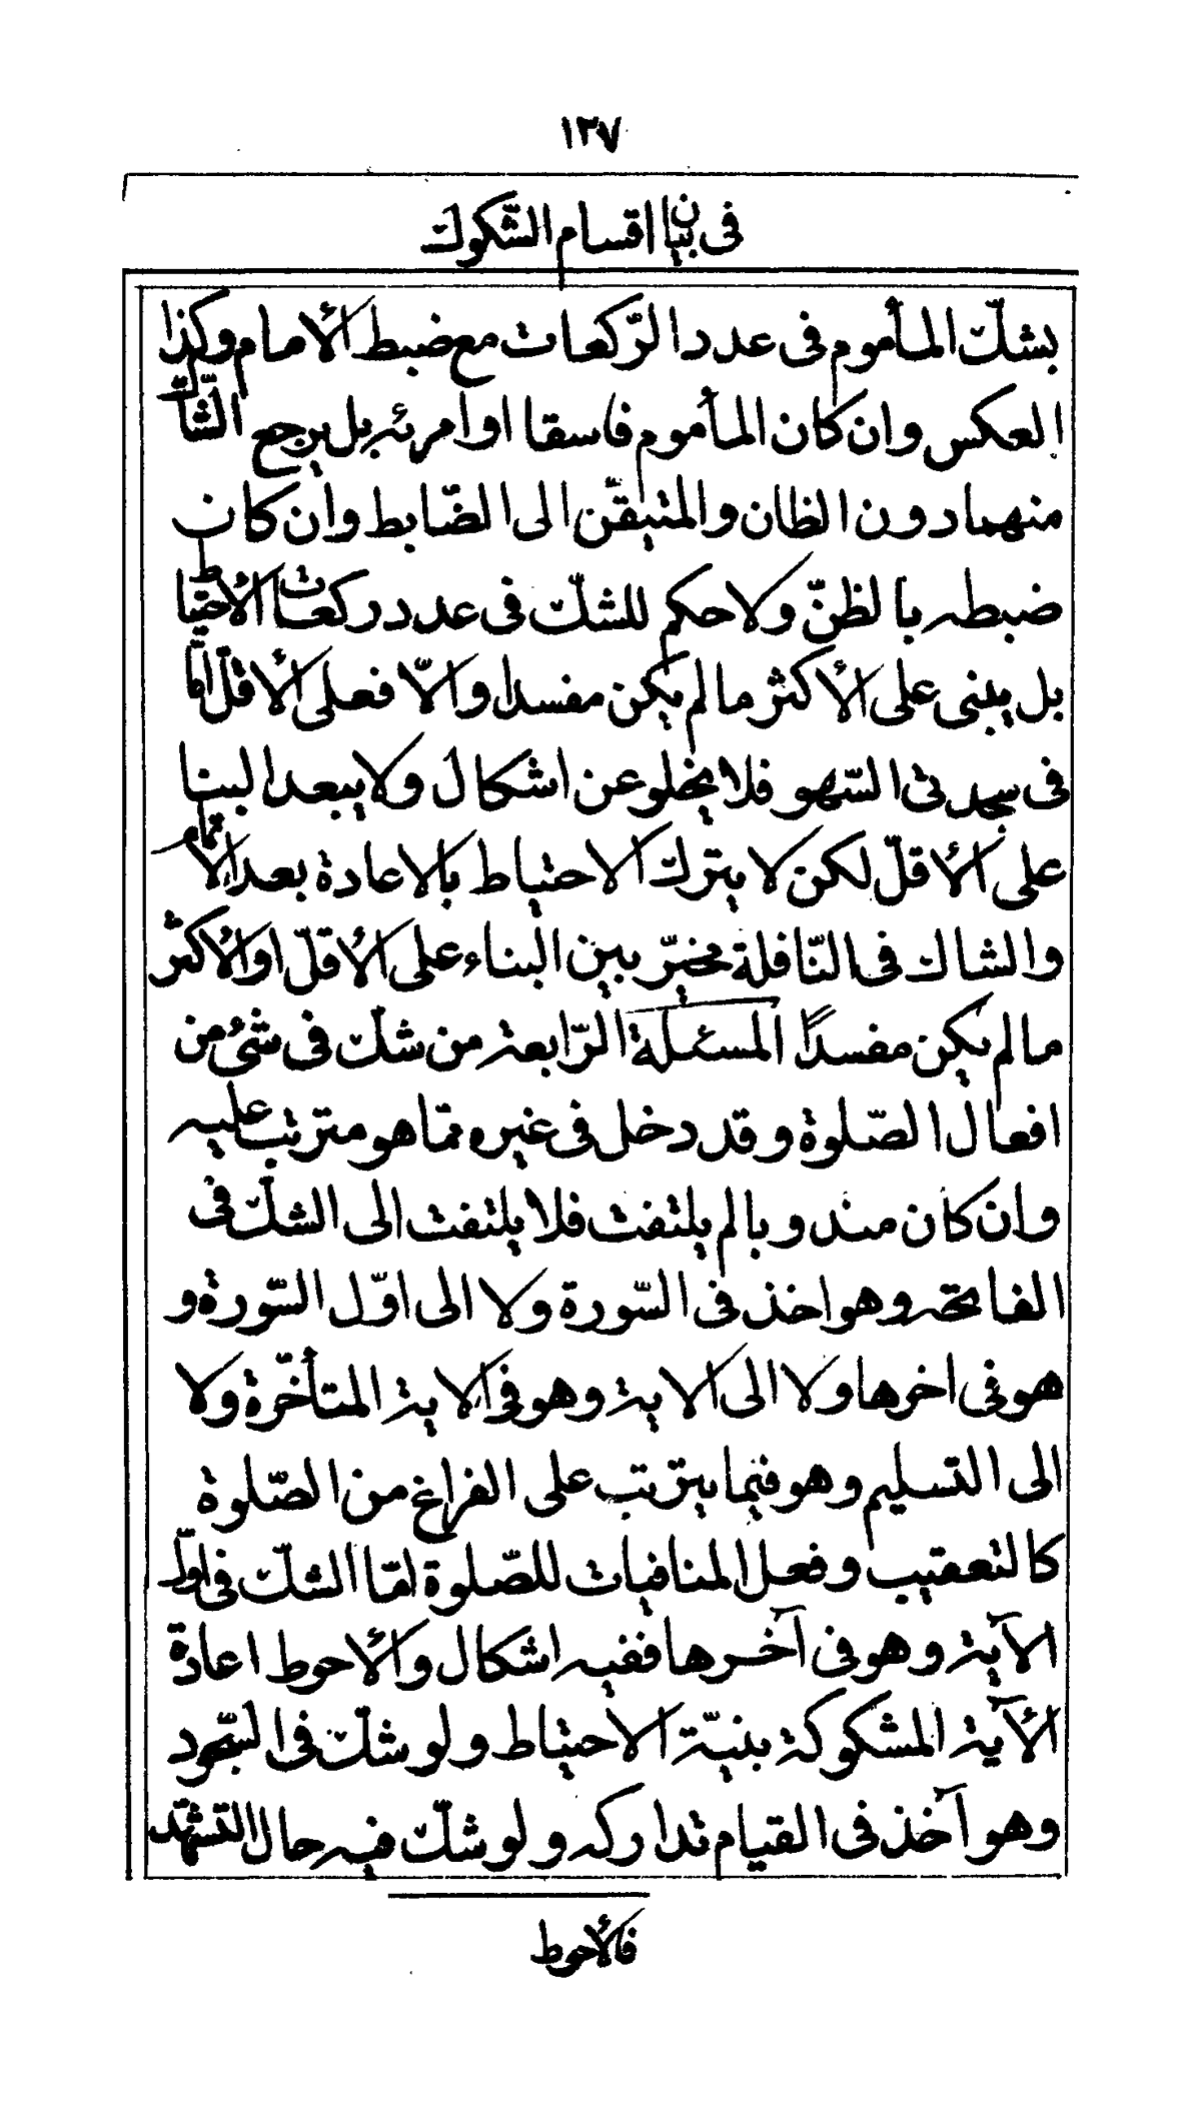 ١٣٧
فى بيان اقسام الشّكوك
بشكّ المأموم فى عدد الرّكعات مع ضبط الأمام وكذا
العكس وان كان المأموم فاسقا او امرئه بل يرجع الشّاكّ
منهما دون الظان والمتيقّن الى الضّابط وان كان
ضبطه بالظنّ ولا حكم للشكّ فى عدد ركعات الأحتياط
بل يبنى على الأكثر ما لم يكن مفسدا والّا فعلى الأقلّ امّا
فى سجدتى السّهو فلا يخلو عن اشكال ولا يبعد البنا
على الأقلّ لكن لا يترك الاحتياط بالاعادة بعد الأتمام
والشاك فى النّافلة مخيّر بين البناء على الأقلّ او الأكثر
ما لم يكن مفسدًا المسئلة الرّابعة من شكّ فى شئ من
افعال الصّلوة وقد دخل فى غيره ممّا هو مترتب عليه
وان كان مندوبا لم يلتفت فلا يلتفت الى الشكّ فى
الفاتحه وهو اخذ فى السّورة ولا الى اوّل السّورة و
هو فى اخرها ولا الى الاية وهو فى الاية المتأخّرة ولا
الى التسليم وهو فيما يترتب على الفراغ من الصّلوة
كالتعقيب وفعل المنافيات للصّلوة امّا الشكّ فى اوّل
الآية وهو فى آخرها ففيه اشكال والأحوط اعادة
الأية المشكوكة بنيّة الأحتياط ولو شكّ فى السّجود
وهو آخذ فى القيام تداركه ولو شكّ فيه حال التّشهّد
فالأحوط